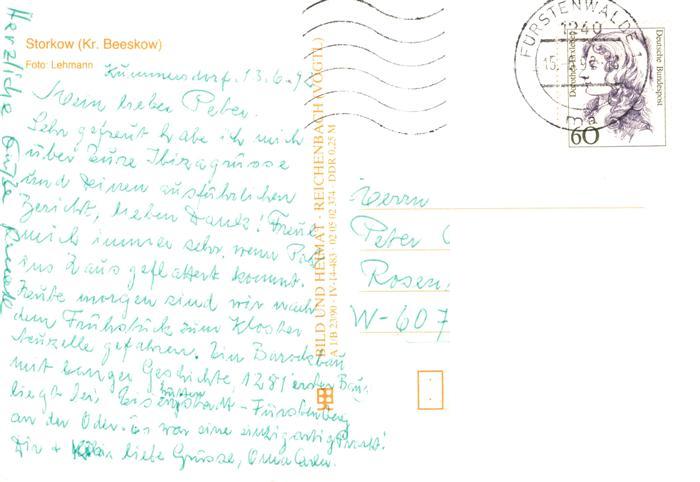 Storkow (Kr. Beeskow)
Foto: Lehmann
Kummersdorf. 13.6.92
Mein lieber Peter.
Sehr gefreut habe ich mich
über Eure Ibizagrüsse
und Deinen ausführlichen
Bericht, lieben Dank! Freue
mich immer sehr, wenn Post
ins Haus geflattert kommt.
Heute morgen sind wir nach
dem Frühstück zum Kloster
Neuzelle gefahren. Ein Barockbau
mit langer Geschichte, 1281 erster Bau,
liegt bei Eisenhüttenstadt - Fürstenberg
an der Oder. Es war eine einzigartig Pracht!
Dir + liebe Grüsse, Oma
Herzliche Grüße
BILD UND HEIMAT · REICHENBACH (VOGTL)
A 1/B 23/90 · IV-14-483 · 02 05 02 374 · DDR 0,25 M
FÜRSTENWALDE 1
1240
15
92
ma
Deutsche Bundespost
Dorothea Erxleben
60
Herrn
Peter
Rosen
W-607